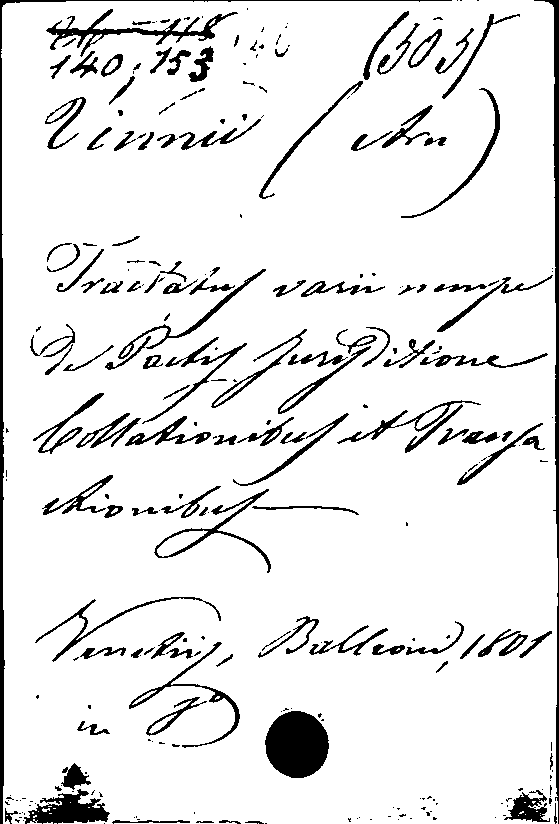 140, 153 146 (503)
Vinnii (Arn)
Tractatus varii nempe
de Pactis Jurisditione
Collationibus et Transa
ctionibus
Venetiis, Balleoni, 1801
in